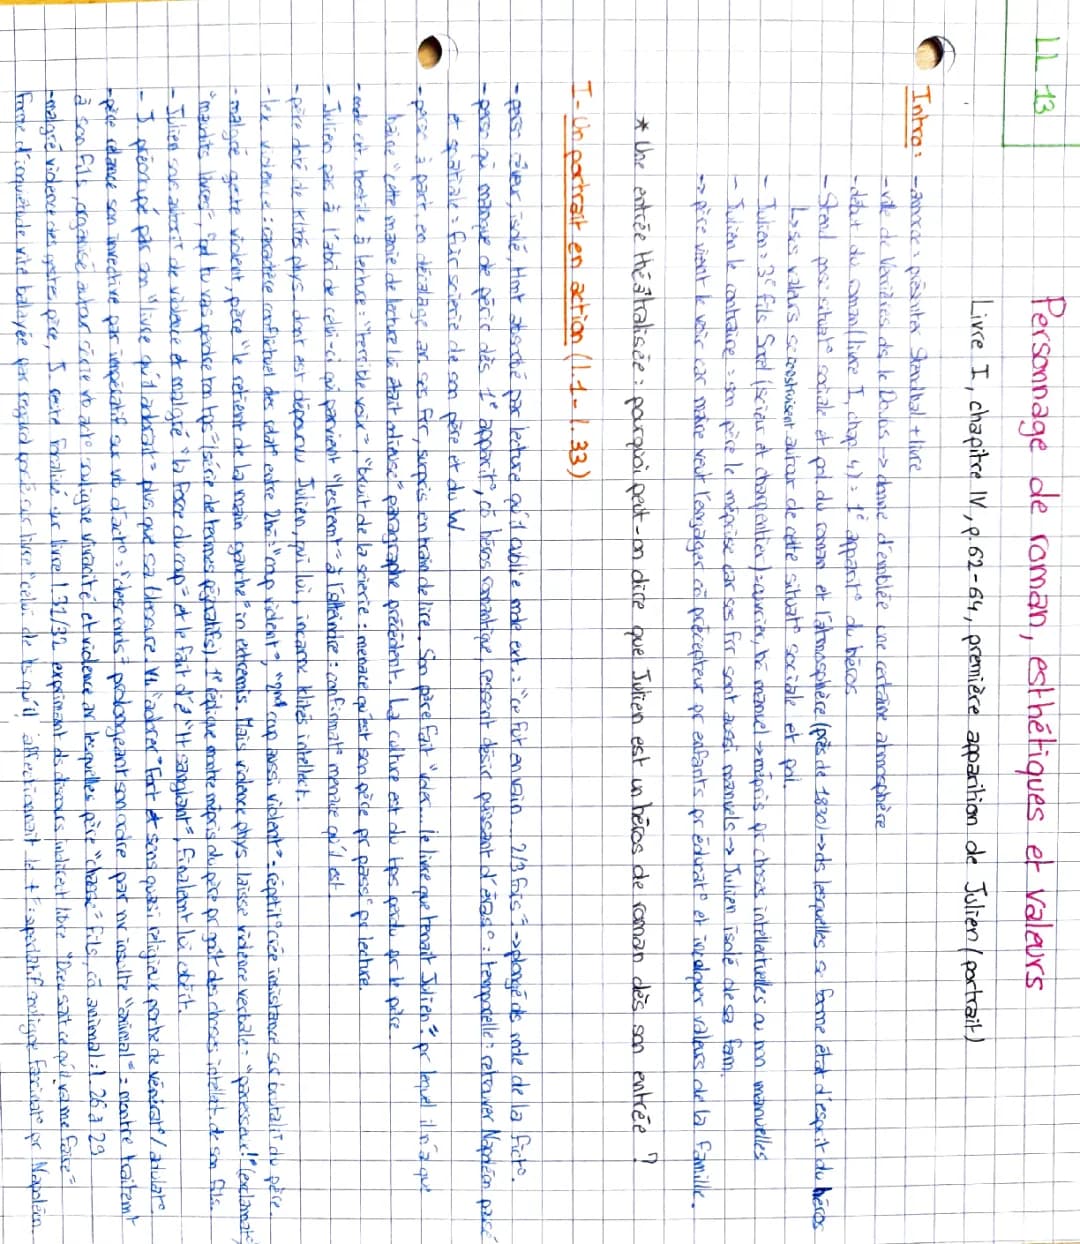 LL 13
Personnage de roman, esthétiques et valeurs
Livre I, chapitre IV, p.62-64, première apparition de Julien (portrait)
Intro: - amorce = présenter Stendhal + livre
- ville de Verrières ds le Doubs → donne d'emblée une certaine atmosphère
- début du roman (livre I, chap 4) = 1e appart° du héros
- Stend pose situat° sociale et pol du roman et l'atmosphère (près de 1830) → ds lesquelles se forme état d'esprit du héros
↳ ses valeurs se construisent autour de cette situat° sociale et pol.
- Julien = 3e fils Sorel (scieur et charpentier) = ouvrier, manuel → mépris pr choses intellectuelles ou non manuelles
- Julien le contraire = son père le méprise car ses frr sont aussi manuels → Julien isolé de sa fam.
→ père vient le voir car maire veut l'engager cô précepteur pr enfants pr éducat° et inculquer valeurs de la famille.
* Une entrée théâtralisée : pourquoi peut-on dire que Julien est un héros de roman dès son entrée ?
I - Un portrait en action (l.1 - l.33)
- pers rêveur, isolé, absorbé par lecture qu'il oublie monde ext = "ce fut en vain ... 2/3 fois" → plongé ds monde de la fict°.
- pers qui manque de périr dès 1e apparit°, cô héros romantique ressent désir puissant d'évas° = temporelle = retrouver Napoléon passé
et spatiale = fuir scierie de son père et du W
- perso à part, en décalage av ses frr, surpris en train de lire. Son père fait "voler ... le livre que tenait Julien" pr lequel il n'a que
haine "cette manie de lecture lui était odieuse" paragraphe précédent. La culture est du tps perdu pr le père.
- hostile à lecture = "terrible voix", "bruit de la scierie = menace qu'est son père pr pass° pr lecture.
- Julien pas à l'abri de celui-ci qui parvient "lestement" à l'atteindre = confirmat° menace qu'il est
- père doté de klités phys. dont est dépourvu Julien, qui lui, incarne klités intellect.
- lex violence : caractère conflictuel des relat° entre 2 "coup violent", "coup aussi violent" - répétit° crée insistance sur brutalité du père.
- malgré geste violent, père "le retient de la main gauche" in extremis. Mais violence phys laisse violence verbale = "paresseux!" (exclamat°)
"maudits livres" (série de termes péjoratifs). 1e réplique montre mépris du père pr goût des choses intellect. de son fils.
- Julien violence et malgré "la force du coup" et le fait d'ê "tt sanglant", finalement lui obéit.
- J préoccupé par son "livre qu'il adorait" plus que sa blessure. Vb "adorer" fort et sens quasi religieux porte de vénérat°/adulat°
- père relance son invective par impératif sur vb d'act° = "descends" prolongeant son ordre par insulte "animal" = montre traitemt
à son fils, organisé autour vb act° souligne vivacité et violence av lesquelles père "chasse" fils, cô animal = l.26 à 29
- malgré violence des gestes père, J reste focalisé sur livre l.31/32 exprimant ds discours indirect libre "Dieu sait ce qu'il va me faire"
forme d'inquiétude vite balayée par regard sur livre "celui de ts qu'il affectionnait le +" = superlatif souligne fascinat° pr Napoléon.